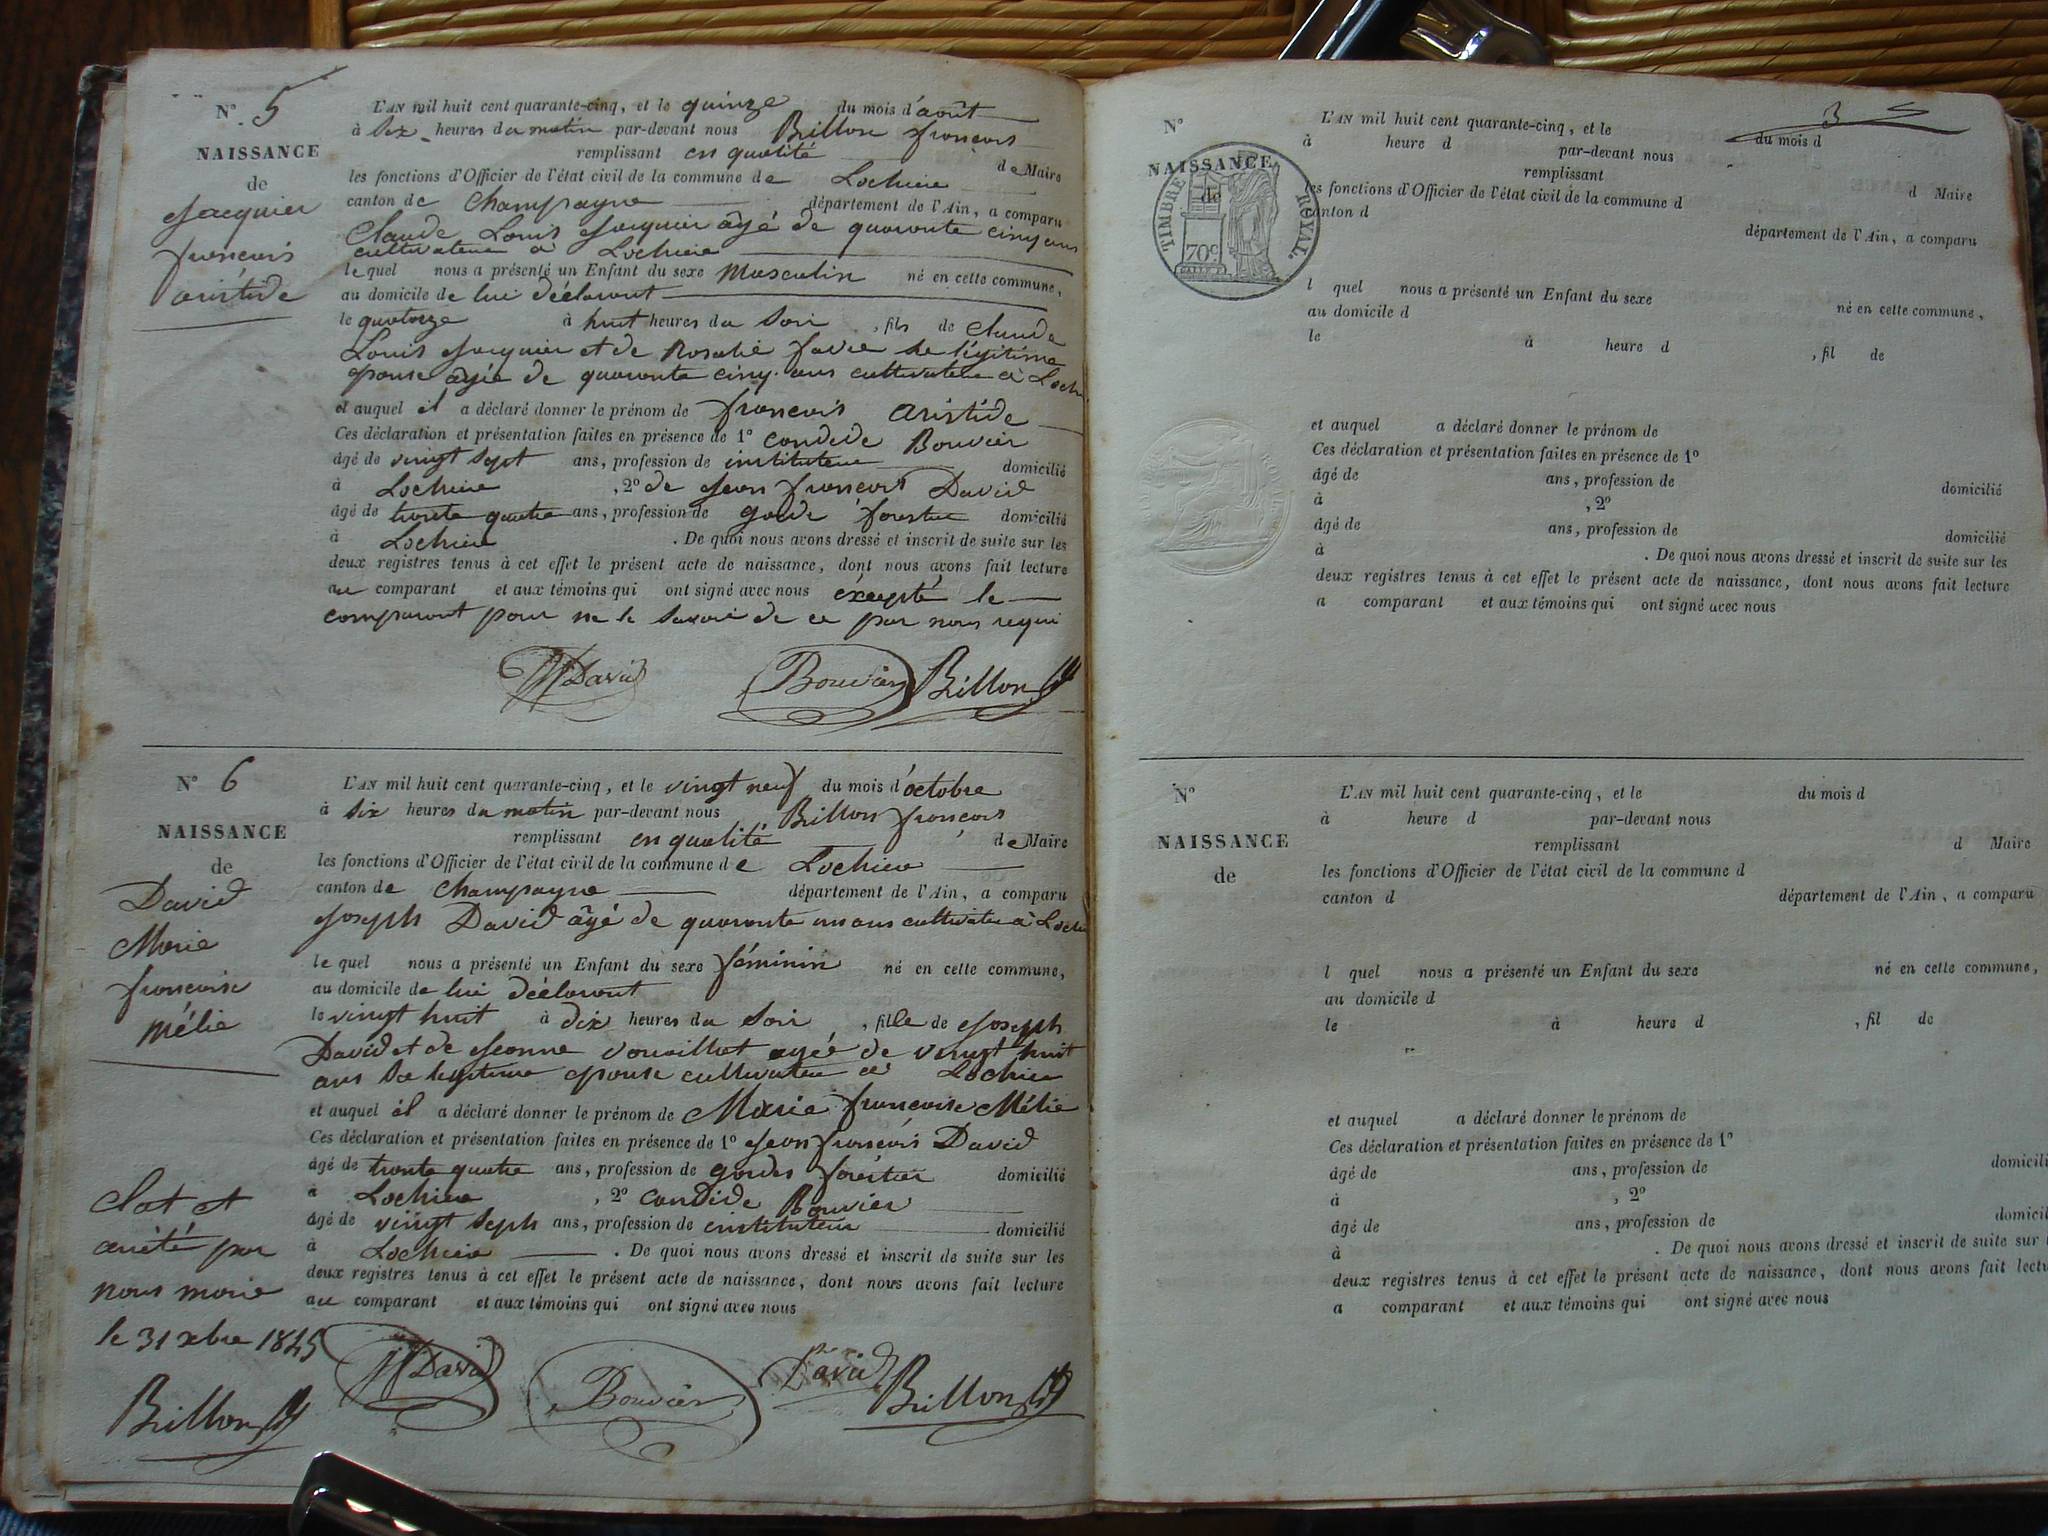 N° 5
NAISSANCE
de
Jacquier
francois
aristide
L'AN mil huit cent quarante-cinq, et le quinze du mois d'août
à six heures du matin par-devant nous Brillon francois
remplissant en qualité de Maire
les fonctions d'Officier de l'état civil de la commune de Lochieu
canton de Champagne département de l'Ain, a comparu
Claude Louis Jacquier âgé de quaronte cinq ans
cultivateur a Lochieu
le quel nous a présenté un Enfant du sexe Masculin né en cette commune,
au domicile de lui déclarant
le quatorze à huit heures du soir, fils de Claude
Louis Jacquier et de Rosalie favre sa légitime
epouse agée de quaronte cinq ans cultivateur a Loch
et auquel il a déclaré donner le prénom de francois aristide
Ces déclaration et présentation faites en présence de 1° Candide Bouvier
âgé de vingt sept ans, profession de instituteur domicilié
à Lochieu, 2° de Jean francois David
âgé de trente quatre ans, profession de garde forestier domicilié
à Lochieu. De quoi nous avons dressé et inscrit de suite sur les
deux registres tenus à cet effet le présent acte de naissance, dont nous avons fait lecture
au comparant et aux témoins qui ont signé avec nous éxcepté le
comparant pour ne le savoir de ce par nous requi
JfDavid Bouvier Brillon
N° 6
NAISSANCE
de
David
Marie
francoise
Mélie
L'AN mil huit cent quarante-cinq, et le vingt neuf du mois d'octobre
à six heures du matin par-devant nous Brillon francois
remplissant en qualité de Maire
les fonctions d'Officier de l'état civil de la commune de Lochieu
canton de Champagne département de l'Ain, a comparu
Joseph David âgé de quaronte un ans cultivateur a Lochieu
le quel nous a présenté un Enfant du sexe féminin né en cette commune,
au domicile de lui déclarant
le vingt huit à dix heures du soir, fille de Joseph
David et de Jeanne agée de vingt huit
ans sa legitime epouse cultivateur a Lochieu
et auquel il a déclaré donner le prénom de Marie francoise Mélie
Ces déclaration et présentation faites en présence de 1° Jean francois David
âgé de trente quatre ans, profession de gardes foréstier domicilié
à Lochieu, 2° Candide Bouvier
âgé de vingt seph ans, profession de instituteur domicilié
à Lochieu. De quoi nous avons dressé et inscrit de suite sur les
deux registres tenus à cet effet le présent acte de naissance, dont nous avons fait lecture
au comparant et aux témoins qui ont signé avec nous
Clot et
arrêté par
nous maire
le 31 xbre 1845
Brillon
JfDavid Bouvier David Brillon
3
N°
NAISSANCE
de
TIMBRE ROYAL.
70c
L'AN mil huit cent quarante-cinq, et le du mois d
à heure d par-devant nous
remplissant d Maire
les fonctions d'Officier de l'état civil de la commune d
canton d département de l'Ain, a comparu
l quel nous a présenté un Enfant du sexe né en cette commune,
au domicile d
le à heure d, fil de
et auquel a déclaré donner le prénom de
Ces déclaration et présentation faites en présence de 1°
âgé de ans, profession de domicilié
à, 2°
âgé de ans, profession de domicilié
à. De quoi nous avons dressé et inscrit de suite sur les
deux registres tenus à cet effet le présent acte de naissance, dont nous avons fait lecture
a comparant et aux témoins qui ont signé avec nous
N°
NAISSANCE
de
L'AN mil huit cent quarante-cinq, et le du mois d
à heure d par-devant nous
remplissant d Maire
les fonctions d'Officier de l'état civil de la commune d
canton d département de l'Ain, a comparu
l quel nous a présenté un Enfant du sexe né en cette commune,
au domicile d
le à heure d, fil de
et auquel a déclaré donner le prénom de
Ces déclaration et présentation faites en présence de 1°
âgé de ans, profession de domicili
à, 2°
âgé de ans, profession de domicil
à. De quoi nous avons dressé et inscrit de suite sur
deux registres tenus à cet effet le présent acte de naissance, dont nous avons fait lectu
a comparant et aux témoins qui ont signé avec nous